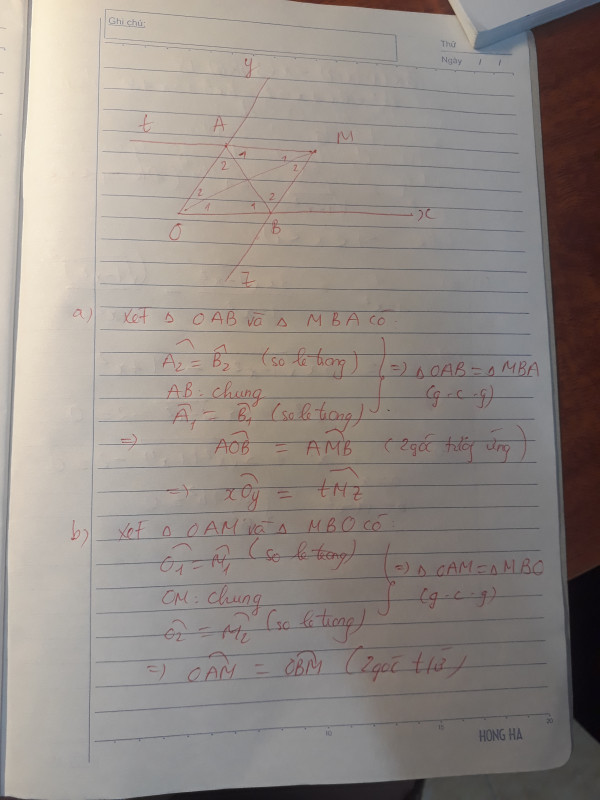 Ghi chú:
Thứ
Ngày / /
y
t A M
1 1
2 2
2 2
1 1
O B x
z
a) Xét △ OAB và △ MBA có
Â2 = B̂2 (so le trong)
AB: chung => △OAB = △MBA
Â1 = B̂1 (so le trong) (g-c-g)
=> AOB = AMB (2 góc tương ứng)
=> xOy = tMz
b) Xét △ OAM và △ MBO có
Ô1 = M̂1 (so le trong)
OM: chung => △OAM = △MBO
Ô2 = M̂2 (so le trong) (g-c-g)
=> OAM = OBM (2 góc tứ)
10 15 20
HONG HA